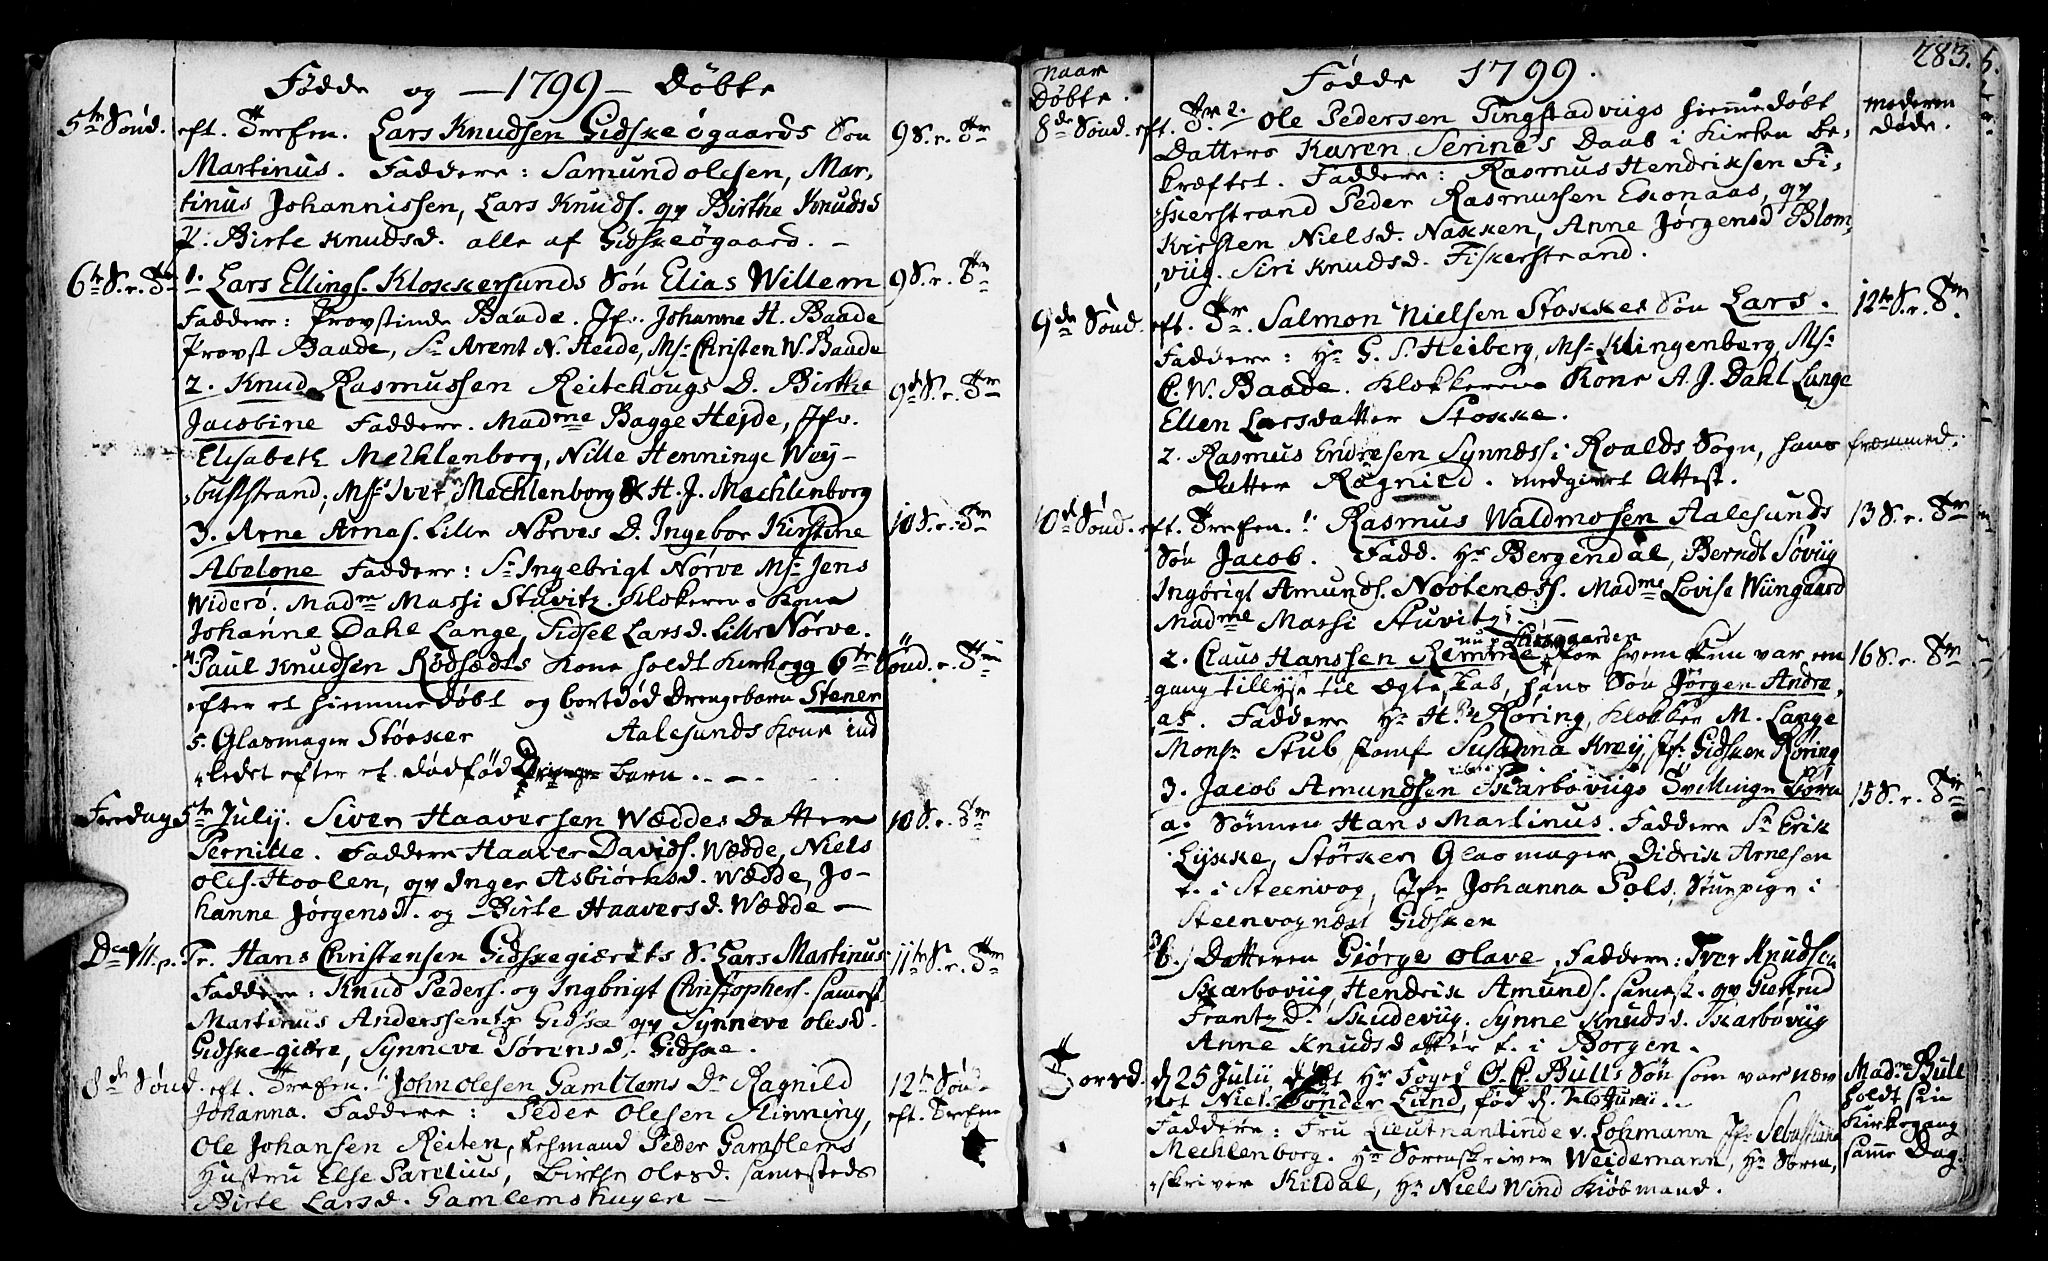 Fødde og — 1799 — Døbte
5te Sønd. eft. Trefln. Lars Knudsen Gidskeøgaards Søn 9 S. e. Tr
Martinus. Faddere: Samund olesen, Mar-
tinus Johannissen, Lars Knuds. og Birthe Knudsd
P. Birte Knudsd. alle af Gidskeøgaard. —
6te S. e. Tr 1. Lars Ellings. Klokkersunds Søn Elias Willem 9 S. e. Tr
Faddere: Provstinde Baade. Jfr. Johanne H. Baade
Provst Baade, Sr Arent N. Heide, Msr Christen W. Baade
2. Knud Rasmussen Reitehougs D. Birthe 9de S. e. Tr
Jacobine Faddere. Madme Bagge Hejde, Jfr.
Elisabeth Mechlenborg, Nille Henninge Wey-
bustrand; Msr Iver Mechlenborg & H. J. Mechlenborg
3. Arne Arnes. Lille Nørves D. Ingebor Kirstine 10 S. e. Tr
Abelone Faddere: Sr Ingebrigt Nørve Msr Jens
Widerø. Madme Massi Stuvitz. Klokerens Kone
Johanne Dahl Lange, Sidsel Larsd. Lille Nørve.
4. Paul Knudsen Rødsædts Kone holdt Kirkegg 6te Sønd. e. Tr
efter et hiemmedøbt og bortdød Drengebarn Stener
5. Glasmager Størker Aalesunds Kone ind
ledet efter et dødfød Barn. . —
Fredag 5te Julij. Siver Haaversen Wæddes Datter 10 S. e. Tr
Pernille. Faddere Haaver Davids. Wædde, Niels
oles. Hoolen, og Inger Asbiørnsd. Wædde, Jo-
hanne Jørgensd. og Birte Haaversd. Wædde —
Dca VII p. Tr. Hans Christensen Gidskegiærets S. Lars Martinus 11te S. e. Tr
Faddere: Knud Peders. og Ingbrigt Christophers. samest
Martinus Anderssen Gidske og Synneve olesd.
Gidske-giære, Synneve Sørensd. Gidske.
8de Sønd. eft. Trefln. 1. John olesen Gamlems Dr Ragnild 12te Sønd.
Johanna. Faddere: Peder Olesen Slinning, eft. Trefln
Ole Johansen Reiten, Lesmand Peder Gamlems
Hustru Else Parelius, Birthe Olesd. samesteds
Birte Larsd. Gamlemshugen —
283.
Naar Døbte. Fødde 1799.
8de Sønd. eft. Tr. 2. Ole Pedersen Tingstadviigs hiemmedøbt Moderen døde.
Datters Karen Serine's Daab i Kirken be-
kræftet. Faddere: Rasmus Hendriksen Fi-
skerstrand Peder Rasmussen Econaas, og
Kirsten Nielsd. Nakken, Anne Jørgensd Blom-
viig. Siri Knudsd. Fiskerstrand.
9de Sønd. eft. Tr. Salmon Nielsen Stokkes Søn Lars. 12te S. e. Tr.
Faddere: Hr G. S. Heiberg, Msr Klingenberg, Msr
C. W. Baade. Klokkerens Kone A. J. Dahl Lange
Ellen Larsdatter Stokke.
2. Rasmus Endresen Synnæss i Roalds Sogn, hans fremmed.
Datter Ragnild. medgivet Attest.
10de Sønd. eft. Trefln. 1. Rasmus Waldmosen Aalesunds 13 S. e. Tr
Søn Jacob. Fadd. Hr Bergendal, Berndt Søviig
Ingbrigt Amunds. Nootenæss. Madme Lovise Wiingaard
Madme Massi Stuvitz. —
2. Claus Hanssen Remme for hvem kun var en 16 S. e. Tr
gang tillyst til Ægteskab, hans Søn Jørgen Andre-
as. Faddere Hr H. Røring, Klokker M. Lange
Monsr Stub, Jomf Susanna Krøy, Jfr Gidsken Røring
3. Jacob Amundsen Skarbøviigs Tvillinge Børn 15 S. e. Tr
a. Sønnen Hans Martinus. Faddere Sr Erik
Lykke, Størker Glasmager, Didrik Arnesen
t. i Steenvog, Jfr Johanna Pols, Stuepige i
Steenvognæst Gidsken
b.) Datteren Giørge Olave, Faddere: Iver Knudsen
Skarboviig, Hendrik Amunds. samest. og Giertrud
Frantzd. Skudeviig. Synne Knudsd. Skarbøviig
Anne Knudsdatter t. i Borgen.
Torsd. d 25 Julii døbt Hr Foged O. C. Bulls Søn som var næv Madme Bull
net Niels Tønder Lund, fød d. Junii . . holdt sin
Faddere: Fru Lieutnantinde v. Lohmann Jfr Sebastiana Kirkegang
Mechlenborg. Hr Sorenskriver Weidemann, Hr Soren- samme Dag.
skriver Kildal, Hr Niels Wind Kiøbmand.